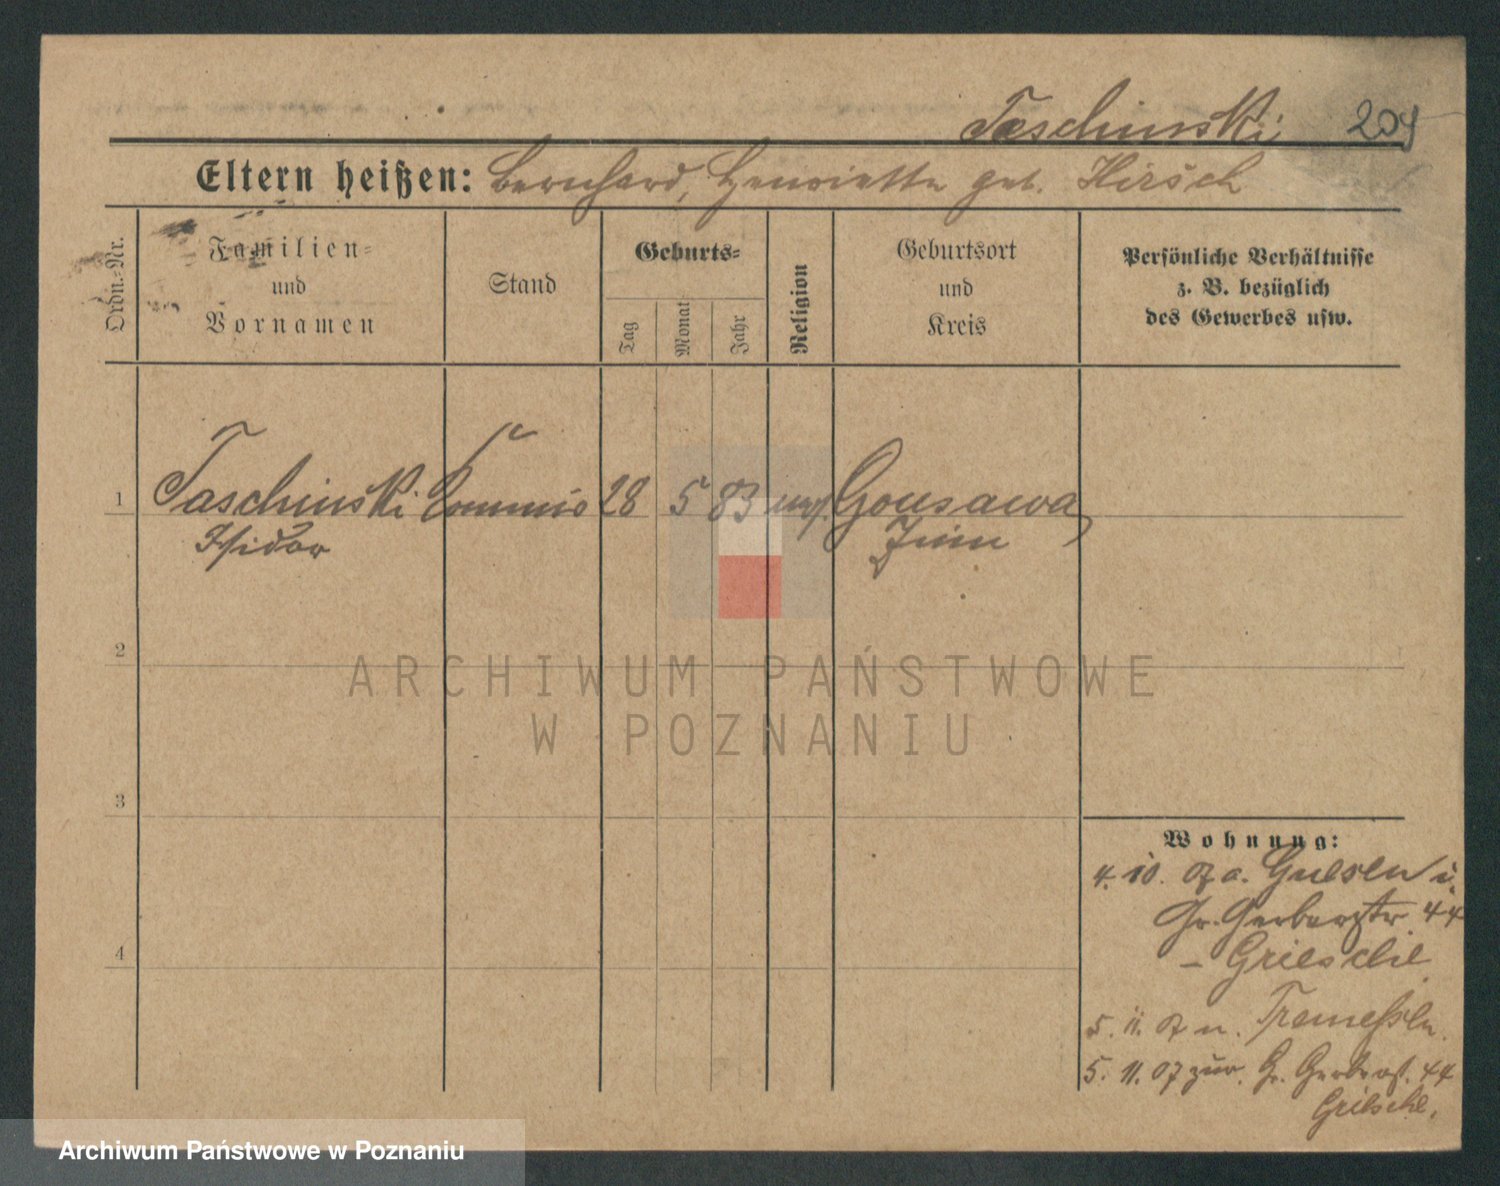 Taschinski 204
Eltern heißen: Bernhard, Henriette geb. Hirsch
Ordn.-Nr.
Familien-
und
Vornamen
Stand
Geburts-
Tag
Monat
Jahr
Religion
Geburtsort
und
Kreis
Persönliche Verhältnisse
z. B. bezüglich
des Gewerbes usw.
1 Taschinski Commis 28 5 83 Gonsawa,
Isidor Znin
2
3
4
Wohnung:
4. 10. 07 a. Gnesen i.
Gr. Gerberstr 44
– Griesche
5. 11. 07 n. Tremessen.
5. 11. 07 zur. Gr. Gerberst. 44
Griesche.
ARCHIWUM PAŃSTWOWE
W POZNANIU
Archiwum Państwowe w Poznaniu